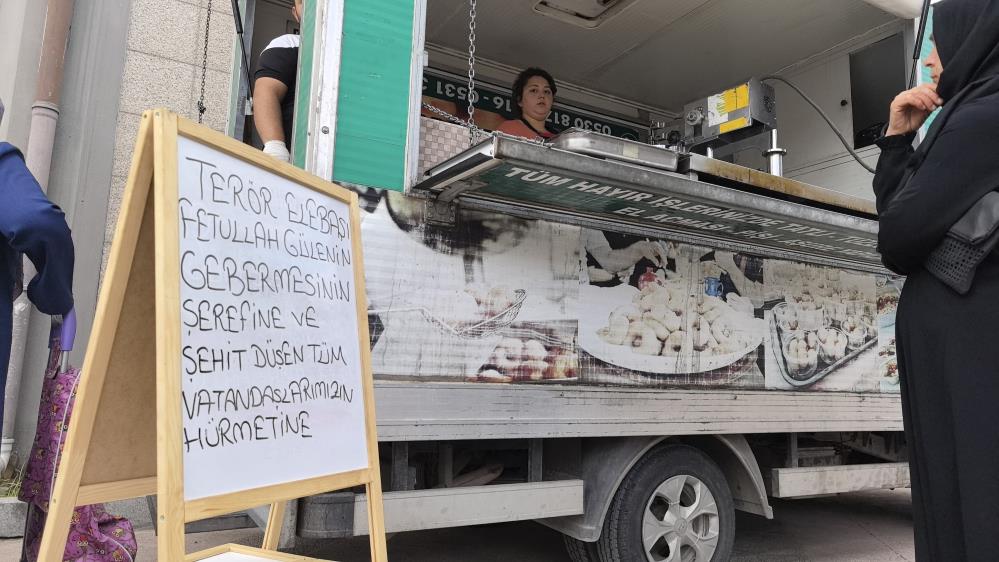 TERÖR ELEBAŞI
FETULLAH GÜLENİN
GEBERMESİNİN
ŞEREFİNE VE
ŞEHİT DÜŞEN TÜM
VATANDAŞLARIMIZIN
HÜRMETİNE
0530 817
16 - 0531
TÜM HAYIR İŞLERİNİZDE TATLI